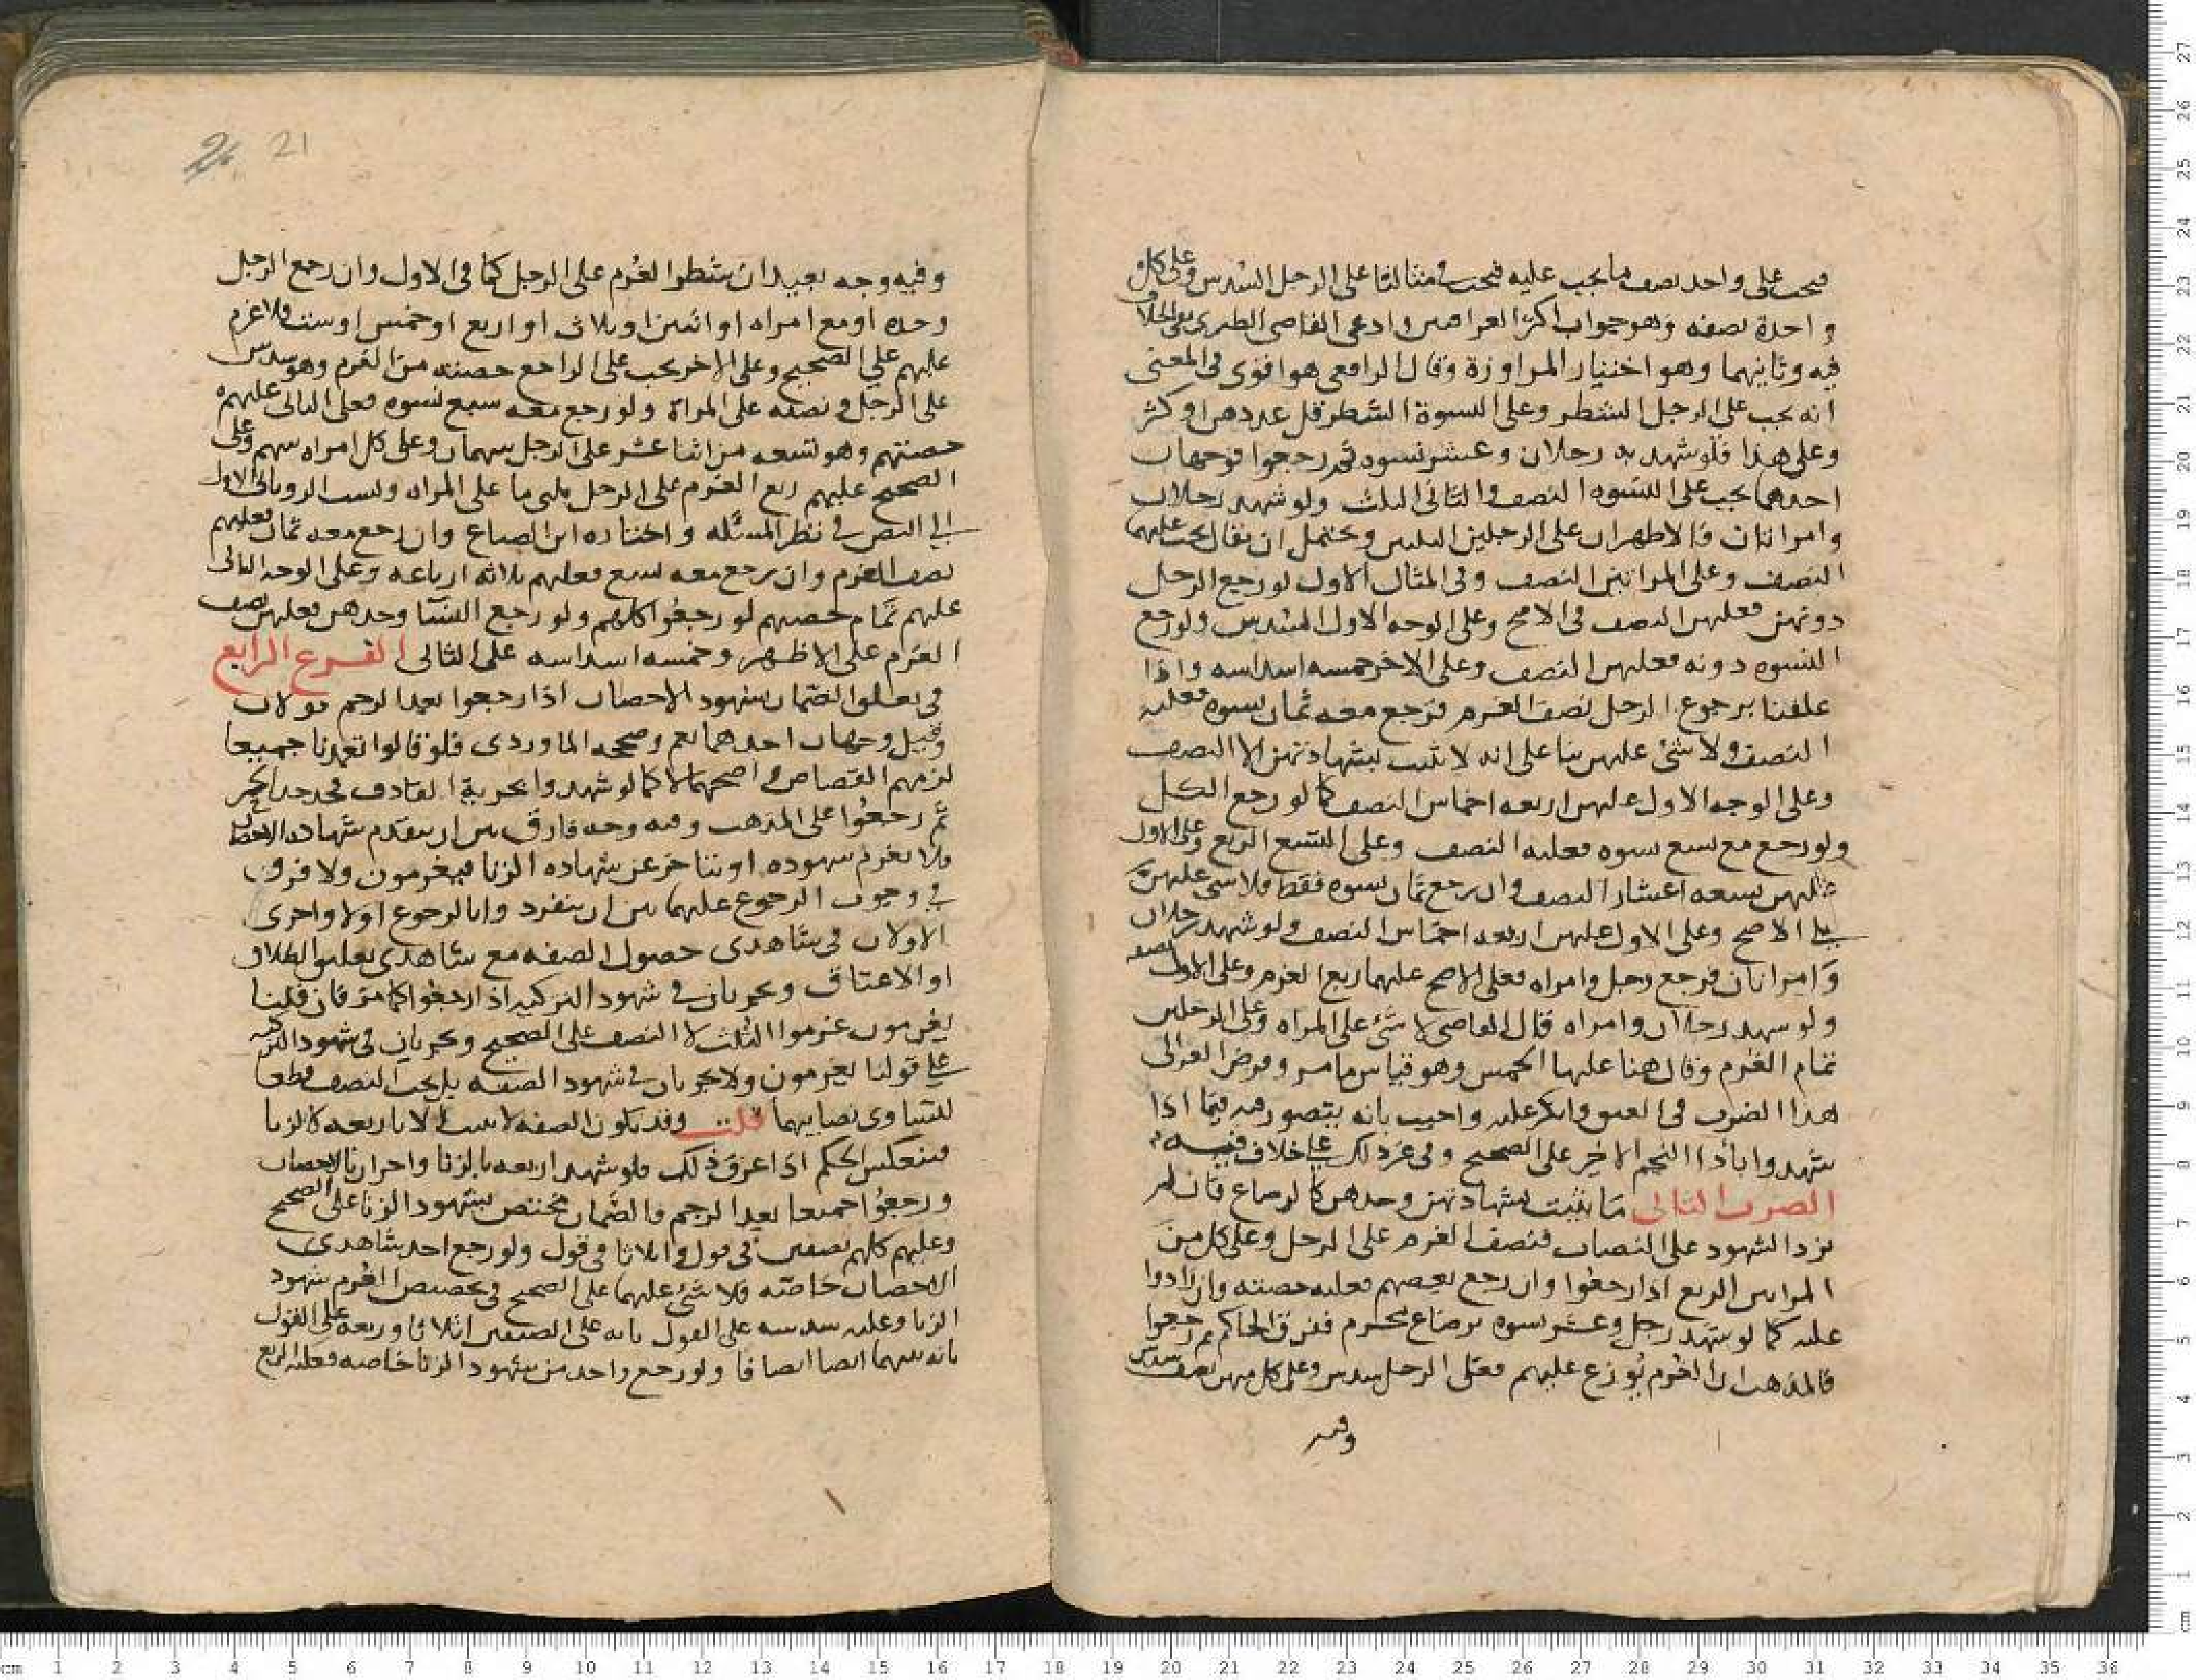 فيجب على واحد نصف ما يجب عليه فيجب في مثالنا على الرجل السدس وعلى كل
واحدة نصفه وهو جواب اكثر العراقيين وادعى القاضي الطبري نفي الخلاف
فيه وثانيهما وهو اختيار المراوزة وقال الرافعي هو اقوى في المعنى
انه يجب على الرجل الشطر وعلى النسوة الشطر قل عددهن او كثر
وعلى هذا فلو شهد به رجلان وعشر نسوه ثم رجعوا فوجهان
احدهما يجب على النسوه النصف والثاني الثلث ولو شهد رجلان
وامراتان فالاظهر ان على الرجلين الثلثين ويحتمل ان يقال يجب عليهما
النصف وعلى المراتين النصف وفي المثال الاول لو رجع الرجل
دونهن فعليه النصف في الاصح وعلى الوجه الاول السدس ولو رجع
النسوه دونه فعليهن النصف وعلى الاخر خمسه اسداسه واذا
علقنا برجوع الرجل نصف الغرم فرجع معه ثمان نسوه فعليه
النصف ولا شئ عليهن بنا على انه لا يثبت بشهادتهن الا النصف
وعلى الوجه الاول عليهن اربعه اخماس النصف كما لو رجع الكل
ولو رجع مع تسع نسوه فعليه النصف وعلى التسع الربع وعلى الاول
عليهن تسعه اعشار النصف وان رجع ثمان نسوه فقط فلا شئ عليهن
على الاصح وعلى الاول عليهن اربعه اخماس النصف ولو شهد رجلان
وامراتان فرجع رجل وامراه فعلى الاصح عليهما ربع الغرم وعلى الاول نصفه
ولو شهد رجلان وامراه قال القاضي لا شئ على المراه وعلى الرجلين
تمام الغرم وقال هنا عليها الخمس وهو قياس ما مر وفرض الغزالي
هذا الضرب في العتق وانكر عليه واجيب بانه يتصور فيه فيما اذا
شهدوا باداء النجم الاخير على الصحيح وفي غير ذلك على خلاف فيه
الضرب الثاني ما يثبت بشهادتهن وحدهن كالرضاع فان لم
تزد الشهود على النصاب فنصف الغرم على الرجل وعلى كل من
المراتين الربع اذا رجعوا وان رجع بعضهم فعليه حصته وان زادوا
عليه كما لو شهد رجل وعشر نسوه برضاع محرم ففرق الحاكم ثم رجعوا
فالمذهب ان الغرم يوزع عليهم فعلى الرجل سدس وعلى كل منهن نصف سدس
وفيه
21
وفيه وجه بعيد ان شطر الغرم على الرجل كما في الاول وان رجع الرجل
وحده او مع امراه او اثنتين او ثلاث او اربع او خمس او ست فلا غرم
عليهم على الصحيح وعلى الاخر يجب على الراجع حصته من الغرم وهو سدس
على الرجل ونصفه على المراة ولو رجع معه سبع نسوه فعلى الثاني عليهم
حصتهم وهو تسعه من اثنا عشر على الرجل سهمان وعلى كل امراه سهم وعلى
الصحيح عليهم ربع الغرم على الرجل مثلى ما على المراه ونسب الروياني الاول
الى النص في نظر المسئله واختاره ابن الصباغ وان رجع معه ثمان فعليهم
نصف الغرم وان رجع معه تسع فعليهم ثلاثه ارباعه وعلى الوجه الثاني
عليهم تمام حصتهم لو رجعوا كلهم ولو رجع النسا وحدهن فعليهن نصف
الغرم على الاظهر وخمسه اسداسه على الثاني الفرع الرابع
في تعلق الضمان بشهود الاحصان اذا رجعوا بعد الرجم قولان
وقيل وجهان احدهما نعم وصححه الماوردي فلو قالوا تعمدنا جميعا
لزمهم القصاص واصحهما لا كما لو شهدوا بحرية القاذف فحد حد الحر
ثم رجعوا على المذهب وفيه وجه فارق بين ان يتقدم شهاده الاحصان
فلا يغرم شهوده او تتاخر عن شهاده الزنا فيغرمون ولا فرق
في وجوب الرجوع عليهما بين ان ينفرد وابالرجوع اولا واجرى
الاولان في شاهدى حصول الصفه مع شاهدى تعليق الطلاق
او الاعتاق ويجريان في شهود التزكيه اذا رجعوا كما مر فان قلنا
يغرمون غرموا الثلث لا النصف على الصحيح ويجريان في شهود التزكيه
على قولنا يغرمون ولا يجريان في شهود الصفه بل يجب النصف قطعا
لتساوى نصابيهما قلت وقد تكون الصفه لا تثبت الا باربعه كالزنا
فينعكس الحكم اذا عرف ذلك فلو شهد اربعه بالزنا واخران بالاحصان
ورجعوا جميعا بعد الرجم فالضمان مختص بشهود الزنا على الصحيح
وعليهم كلهم نصفين في قول واثلاثا في قول ولو رجع احد شاهدى
الاحصان خاصة فلا شئ عليهما على الصحيح في تخصيص الغرم بشهود
الزنا وعليه سدسه على القول بانه على الصنفين اثلاثا وربعه على القول
بانه بينهما ايضا انصافا ولو رجع واحد من شهود الزنا خاصه فعليه الربع